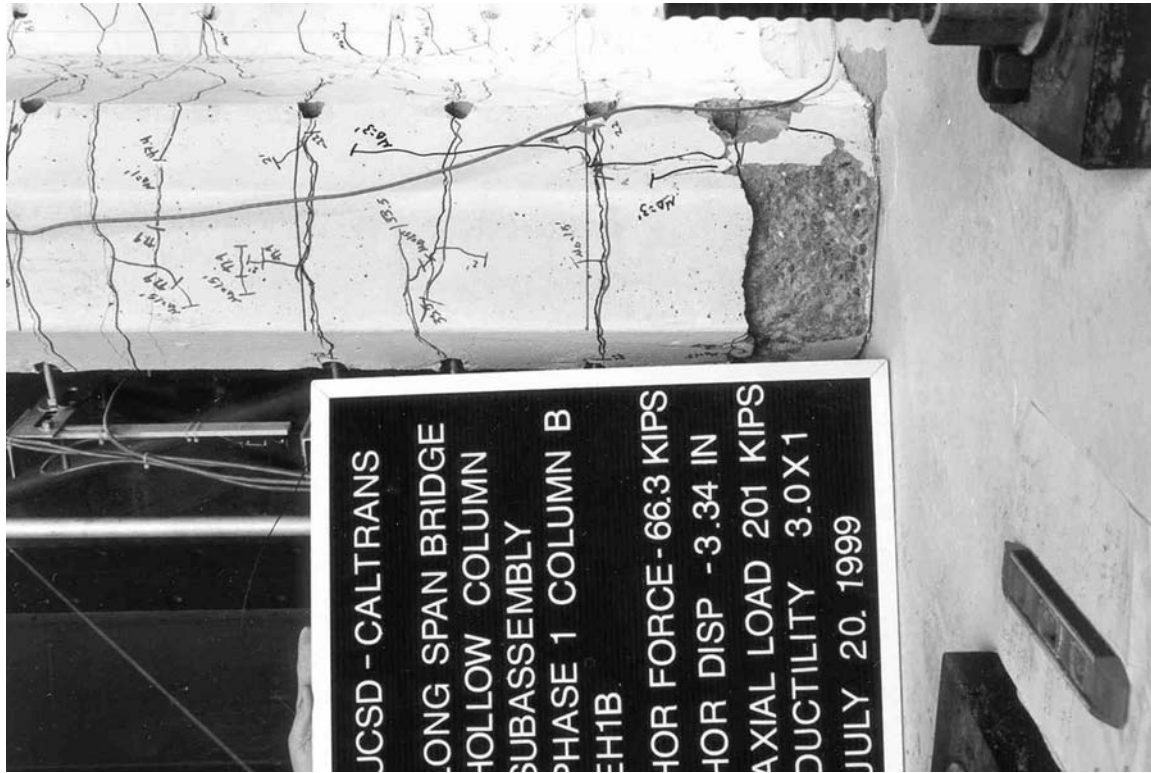 UCSD - CALTRANS
LONG SPAN BRIDGE
HOLLOW COLUMN
SUBASSEMBLY
PHASE 1 COLUMN B
EH1B
HOR FORCE-66.3 KIPS
HOR DISP -3.34 IN
AXIAL LOAD 201 KIPS
DUCTILITY 3.0 X 1
JULY 20. 1999